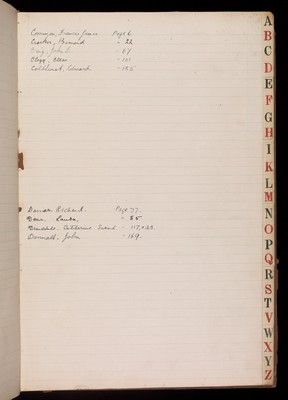 Cannon, Francis James Page 6.
Crocker, Bernard " 22
Craig, John " 67
Clegg, Ellen " 101
Coldhurst, Edward " 125
Danson Richard. Page 77.
Dove Louisa " 85
Catherine Sarah " 117
Donnall, John " 169.
A
B
C
D
E
F
G
H
I
K
L
M
N
O
P
Q
R
S
T
V
W
X
Y
Z